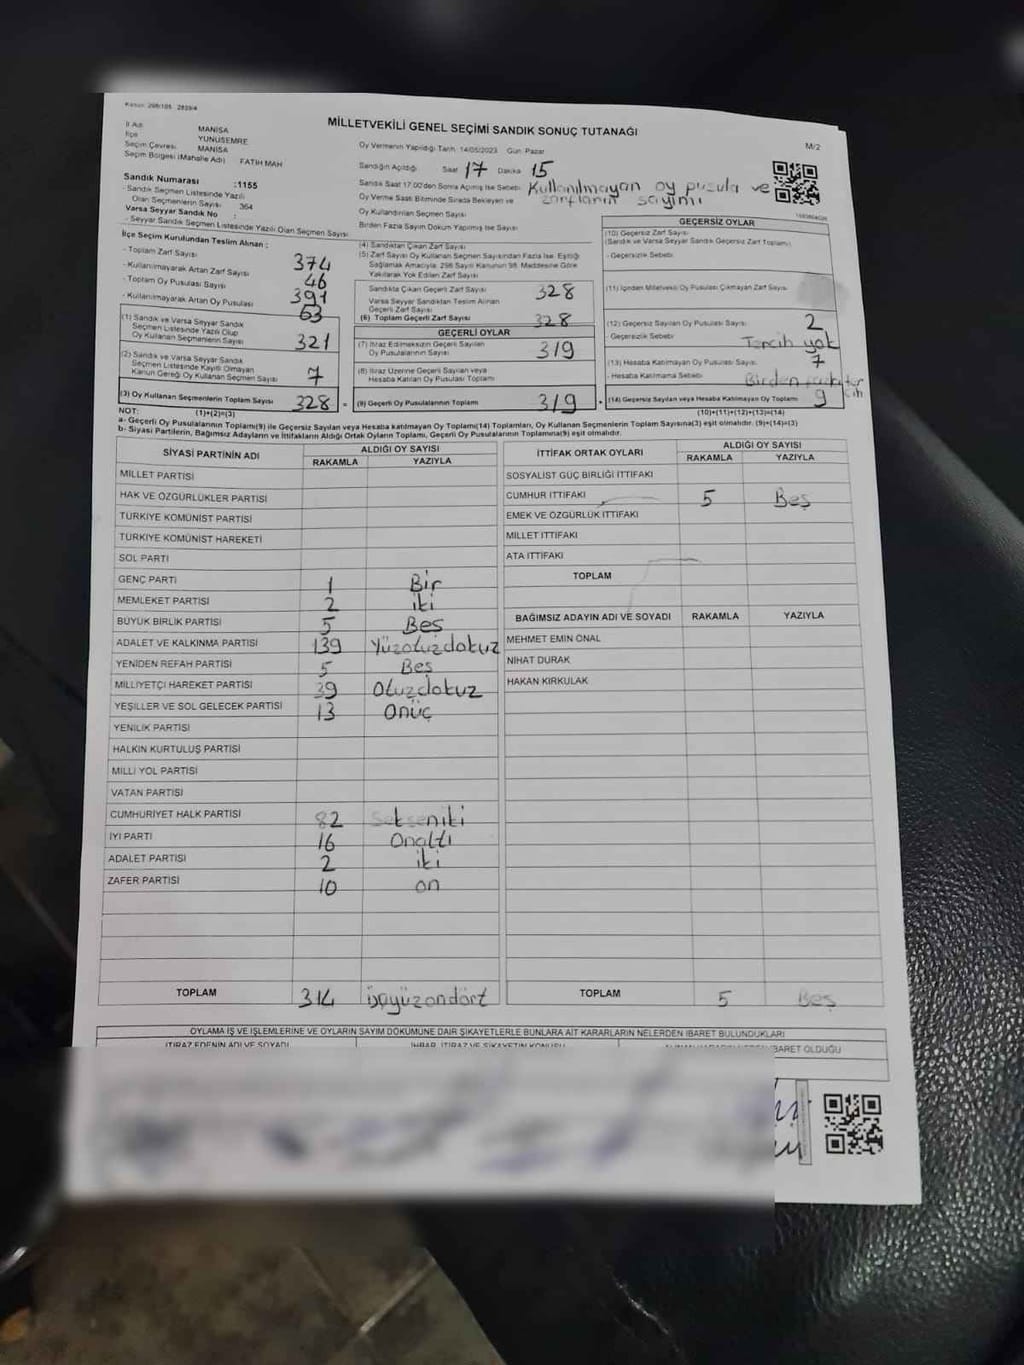 Kanun: 298/105 2839/4
MİLLETVEKİLİ GENEL SEÇİMİ SANDIK SONUÇ TUTANAĞI
M/2
İl Adı MANİSA
İlçe YUNUSEMRE
Seçim Çevresi MANİSA
Seçim Bölgesi (Mahalle Adı) FATİH MAH
Oy Vermenin Yapıldığı Tarih: 14/05/2023 Gün: Pazar
Sandığın Açıldığı Saat 17 Dakika 15
Sandık Saat 17.00'den Sonra Açılmış İse Sebebi Kullanılmayan oy pusula ve zarfların sayımı
Oy Verme Saati Bitiminde Sırada Bekleyen ve
Oy Kullandırılan Seçmen Sayısı
Birden Fazla Sayım Döküm Yapılmış İse Sayısı
Sandık Numarası :1155
- Sandık Seçmen Listesinde Yazılı
Olan Seçmenlerin Sayısı 364
Varsa Seyyar Sandık No :
- Seyyar Sandık Seçmen Listesinde Yazılı Olan Seçmen Sayısı
İlçe Seçim Kurulundan Teslim Alınan :
- Toplam Zarf Sayısı 374
- Kullanılmayarak Artan Zarf Sayısı 46
- Toplam Oy Pusulası Sayısı 391
- Kullanılmayarak Artan Oy Pusulası 63
(1) Sandık ve Varsa Seyyar Sandık
Seçmen Listesinde Yazılı Olup
Oy Kullanan Seçmenlerin Sayısı 321
(2) Sandık ve Varsa Seyyar Sandık
Seçmen Listesinde Kayıtlı Olmayan
Kanun Gereği Oy Kullanan Seçmen Sayısı 7
(3) Oy Kullanan Seçmenlerin Toplam Sayısı 328
(4) Sandıktan Çıkan Zarf Sayısı
(5) Zarf Sayısı Oy Kullanan Seçmen Sayısından Fazla İse, Eşitliği
Sağlamak Amacıyla, 298 Sayılı Kanunun 98. Maddesine Göre
Yakılarak Yok Edilen Zarf Sayısı
Sandıkta Çıkan Geçerli Zarf Sayısı 328
Varsa Seyyar Sandıktan Teslim Alınan
Geçerli Zarf Sayısı
(6) Toplam Geçerli Zarf Sayısı 328
GEÇERLİ OYLAR
(7) İtiraz Edilmeksizin Geçerli Sayılan
Oy Pusulalarının Sayısı 319
(8) İtiraz Üzerine Geçerli Sayılan veya
Hesaba Katılan Oy Pusulası Toplamı
(9) Geçerli Oy Pusulalarının Toplamı 319
GEÇERSİZ OYLAR
(10) Geçersiz Zarf Sayısı
(Sandık ve Varsa Seyyar Sandık Geçersiz Zarf Toplamı)
- Geçersizlik Sebebi
(11) İçinden Milletvekili Oy Pusulası Çıkmayan Zarf Sayısı
(12) Geçersiz Sayılan Oy Pusulası Sayısı 2
- Geçersizlik Sebebi Tercih yok
(13) Hesaba Katılmayan Oy Pusulası Sayısı 7
- Hesaba Katılmama Sebebi Birden fazla
(14) Geçersiz Sayılan veya Hesaba Katılmayan Oy Toplamı 9
NOT: (1)+(2)=(3) (10)+(11)+(12)+(13)=(14)
a- Geçerli Oy Pusulalarının Toplamı(9) ile Geçersiz Sayılan veya Hesaba katılmayan Oy Toplamı(14) Toplamları, Oy Kullanan Seçmenlerin Toplam Sayısına(3) eşit olmalıdır. (9)+(14)=(3)
b- Siyasi Partilerin, Bağımsız Adayların ve İttifakların Aldığı Ortak Oyların Toplamı, Geçerli Oy Pusulalarının Toplamına(9) eşit olmalıdır.
SİYASİ PARTİNİN ADI ALDIĞI OY SAYISI
RAKAMLA YAZIYLA
MİLLET PARTİSİ
HAK VE ÖZGÜRLÜKLER PARTİSİ
TÜRKİYE KOMÜNİST PARTİSİ
TÜRKİYE KOMÜNİST HAREKETİ
SOL PARTİ
GENÇ PARTİ 1 Bir
MEMLEKET PARTİSİ 2 iki
BÜYÜK BİRLİK PARTİSİ 5 Beş
ADALET VE KALKINMA PARTİSİ 139 Yüzotuzdokuz
YENİDEN REFAH PARTİSİ 5 Beş
MİLLİYETÇİ HAREKET PARTİSİ 39 Otuzdokuz
YEŞİLLER VE SOL GELECEK PARTİSİ 13 Onüç
YENİLİK PARTİSİ
HALKIN KURTULUŞ PARTİSİ
MİLLİ YOL PARTİSİ
VATAN PARTİSİ
CUMHURİYET HALK PARTİSİ 82 Sekseniki
İYİ PARTİ 16 Onaltı
ADALET PARTİSİ 2 iki
ZAFER PARTİSİ 10 on
TOPLAM 314 üçyüzondört
İTTİFAK ORTAK OYLARI ALDIĞI OY SAYISI
RAKAMLA YAZIYLA
SOSYALİST GÜÇ BİRLİĞİ İTTİFAKI
CUMHUR İTTİFAKI 5 Beş
EMEK VE ÖZGÜRLÜK İTTİFAKI
MİLLET İTTİFAKI
ATA İTTİFAKI
TOPLAM
BAĞIMSIZ ADAYIN ADI VE SOYADI RAKAMLA YAZIYLA
MEHMET EMİN ÖNAL
NİHAT DURAK
HAKAN KIRKULAK
TOPLAM 5 Beş
OYLAMA İŞ VE İŞLEMLERİNE VE OYLARIN SAYIM DÖKÜMÜNE DAİR ŞİKAYETLERLE BUNLARA AİT KARARLARIN NELERDEN İBARET BULUNDUKLARI
İTİRAZ EDENİN ADI VE SOYADI İHBAR, İTİRAZ VE ŞİKAYETİN KONUSU İBARET OLDUĞU